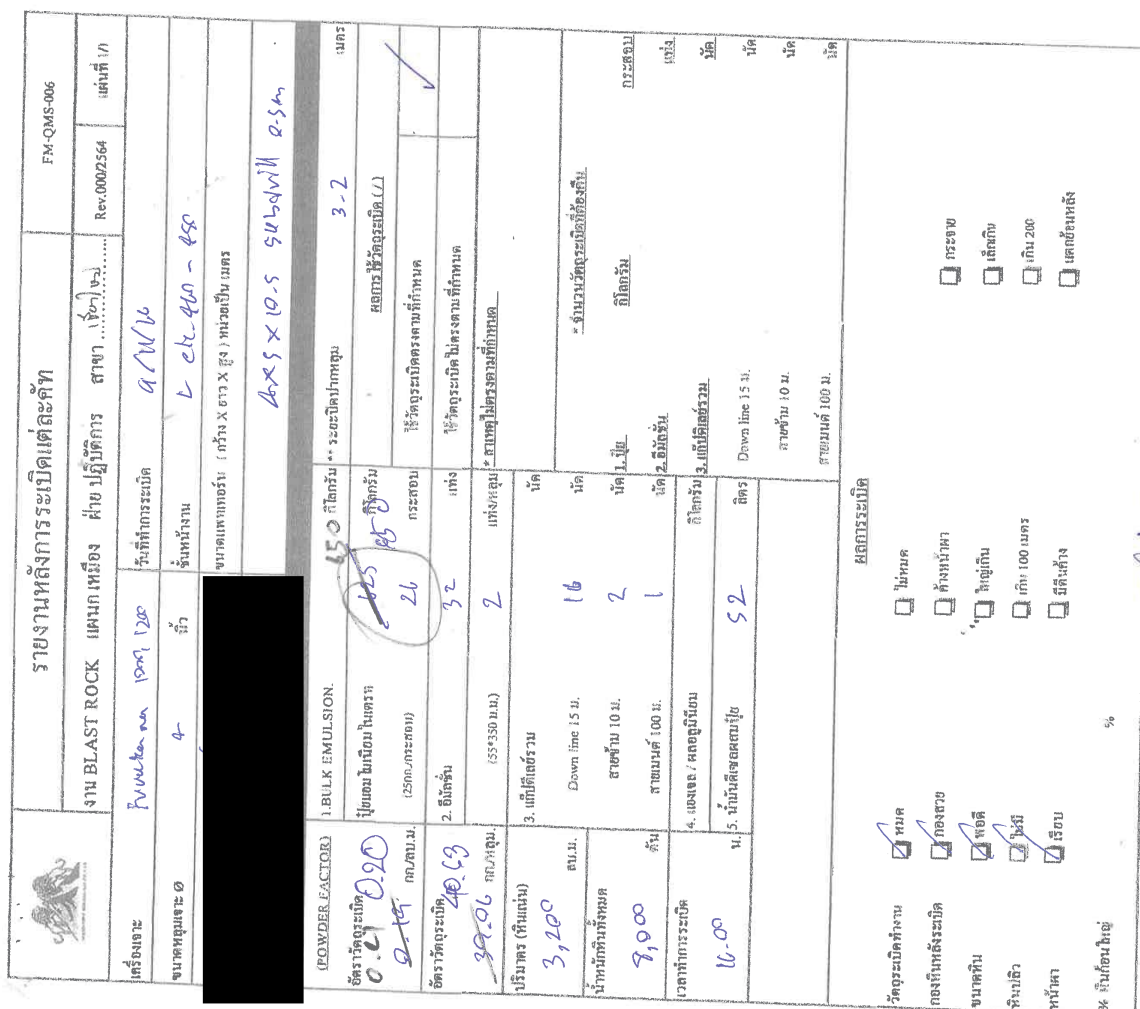 รายงานหลังการระเบิดแต่ละคัท
FM-QMS-006
งาน BLAST ROCK แผนกเหมือง ฝ่าย ปฏิบัติการ สาขา
Rev.000/2564
แผ่นที่ 1/1
เครื่องเจาะ 1200
วันที่ทำการระเบิด
ขนาดหลุมเจาะ Ø 4 นิ้ว
ชั้นหน้างาน
ขนาดแพทเทอร์น ( กว้าง X ยาว X สูง ) หน่วยเป็น เมตร
(POWDER FACTOR)
อัตราวัตถุระเบิด 0.20
กก./ลบ.ม.
อัตราวัตถุระเบิด 40.63
กก./หลุม.
ปริมาตร (หินแน่น)
3,200 ลบ.ม.
น้ำหนักหินทั้งหมด
8,000 ตัน
เวลาทำการระเบิด
16.00 น.
1.BULK EMULSION. 650 กิโลกรัม
ปุ๋ยแอมโมเนียมไนเตรท 625 650 กิโลกรัม
(25กก./กระสอบ) 26 กระสอบ
2. อิมัลชั่น 32 แท่ง
(55*350 ม.ม.) 2 แท่ง/หลุม
3. แก๊ปดีเลย์รวม นัด
Down line 15 ม. 16 นัด
สายข้าม 10 ม. 2 นัด
สายเมนต์ 100 ม. 1 นัด
4. แองเจล / ผลอลูมิเนียม กิโลกรัม
5. น้ำมันดีเซลผสมปุ๋ย 52 ลิตร
** ระยะปิดปากหลุม 3-2 เมตร
ผลการใช้วัตถุระเบิด (/)
ใช้วัตถุระเบิดตรงตามที่กำหนด ✓
ใช้วัตถุระเบิดไม่ตรงตามที่กำหนด
* สาเหตุไม่ตรงตามที่กำหนด
* จำนวนวัตถุระเบิดที่ต้องคืน
1. ปุ๋ย กิโลกรัม กระสอบ
2. อิมัลชั่น แท่ง
3. แก๊ปดีเลย์รวม นัด
Down line 15 ม. นัด
สายข้าม 10 ม. นัด
สายเมนต์ 100 ม. นัด
ผลการระเบิด
วัตถุระเบิดทำงาน หมด ไม่หมด
กองหินหลังระเบิด กองสวย ค้างหน้าผา กระจาย
ขนาดหิน พอดี ใหญ่เกิน เล็กเกิน
หินปลิว ไม่มี เกิน 100 เมตร เกิน 200
หน้าผา เรียบ มีตีนค้าง แตกย้อนหลัง
% หินก้อนใหญ่ %